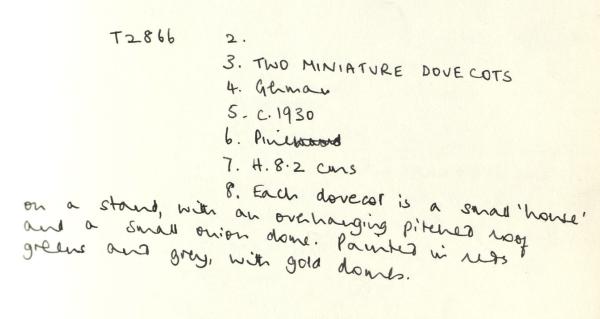 T2866 2.
3. TWO MINIATURE DOVECOTS
4. German
5. c.1930
6. Pine
7. H. 8.2 cms
8. Each dovecot is a small 'house'
on a stand, with an overhanging pitched roof
and a small onion dome. Painted in reds
greens and grey, with gold domes.